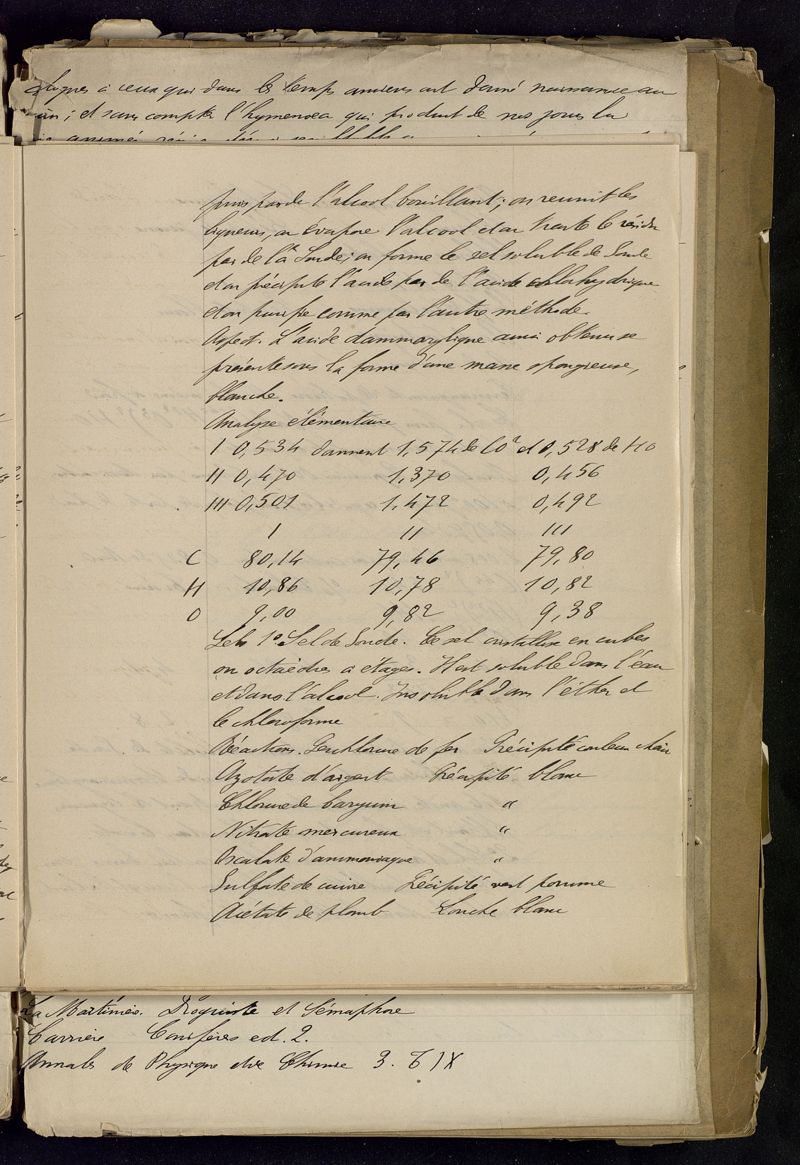 à ceux qui dans les temps anciens ont donné naissance au
; et sans compter l'hymenoea qui produit de nos jours la
puis par de l'alcool bouillant; on reunit les
liqueurs, on évapore l'alcool et on traite le résidu
par de la Soude; on forme le sel soluble de Soude
et on précipite l'acide par de l'acide chlorhydrique
et on purifie comme par l'autre méthode.
Aspect. L'acide dammarylique ainsi obtenu se
présente sous la forme d'une masse spongieuse,
blanche.
Analyse élémentaire
I 0,534 donnent 1,574 de Co² et 0,528 de HO
II 0,470 1,370 0,456
III 0,501 1,472 0,492
I II III
C 80,14 79,46 79,80
H 10,86 10,78 10,82
O 9,00 9,82 9,38
Sels 1º Sel de Soude. Ce sel cristallise en cubes
ou octaèdres a étages. Il est soluble dans l'eau
et dans l'alcool. Insoluble dans l'éther et
le chloroforme
Réactions. Perchlorure de fer Précipité couleur chair
Azotate d'argent Précipité blanc
Chlorure de baryum "
Nitrate mercureux "
Oxalate d'ammoniaque "
Sulfate de cuivre Précipité vert pomme
Acétate de plomb Louche blanc
La Martinière. Droguiste et Sémaphore
Carrière Conifères ed. 2.
Annales de Physique et de Chimie 3. T IX